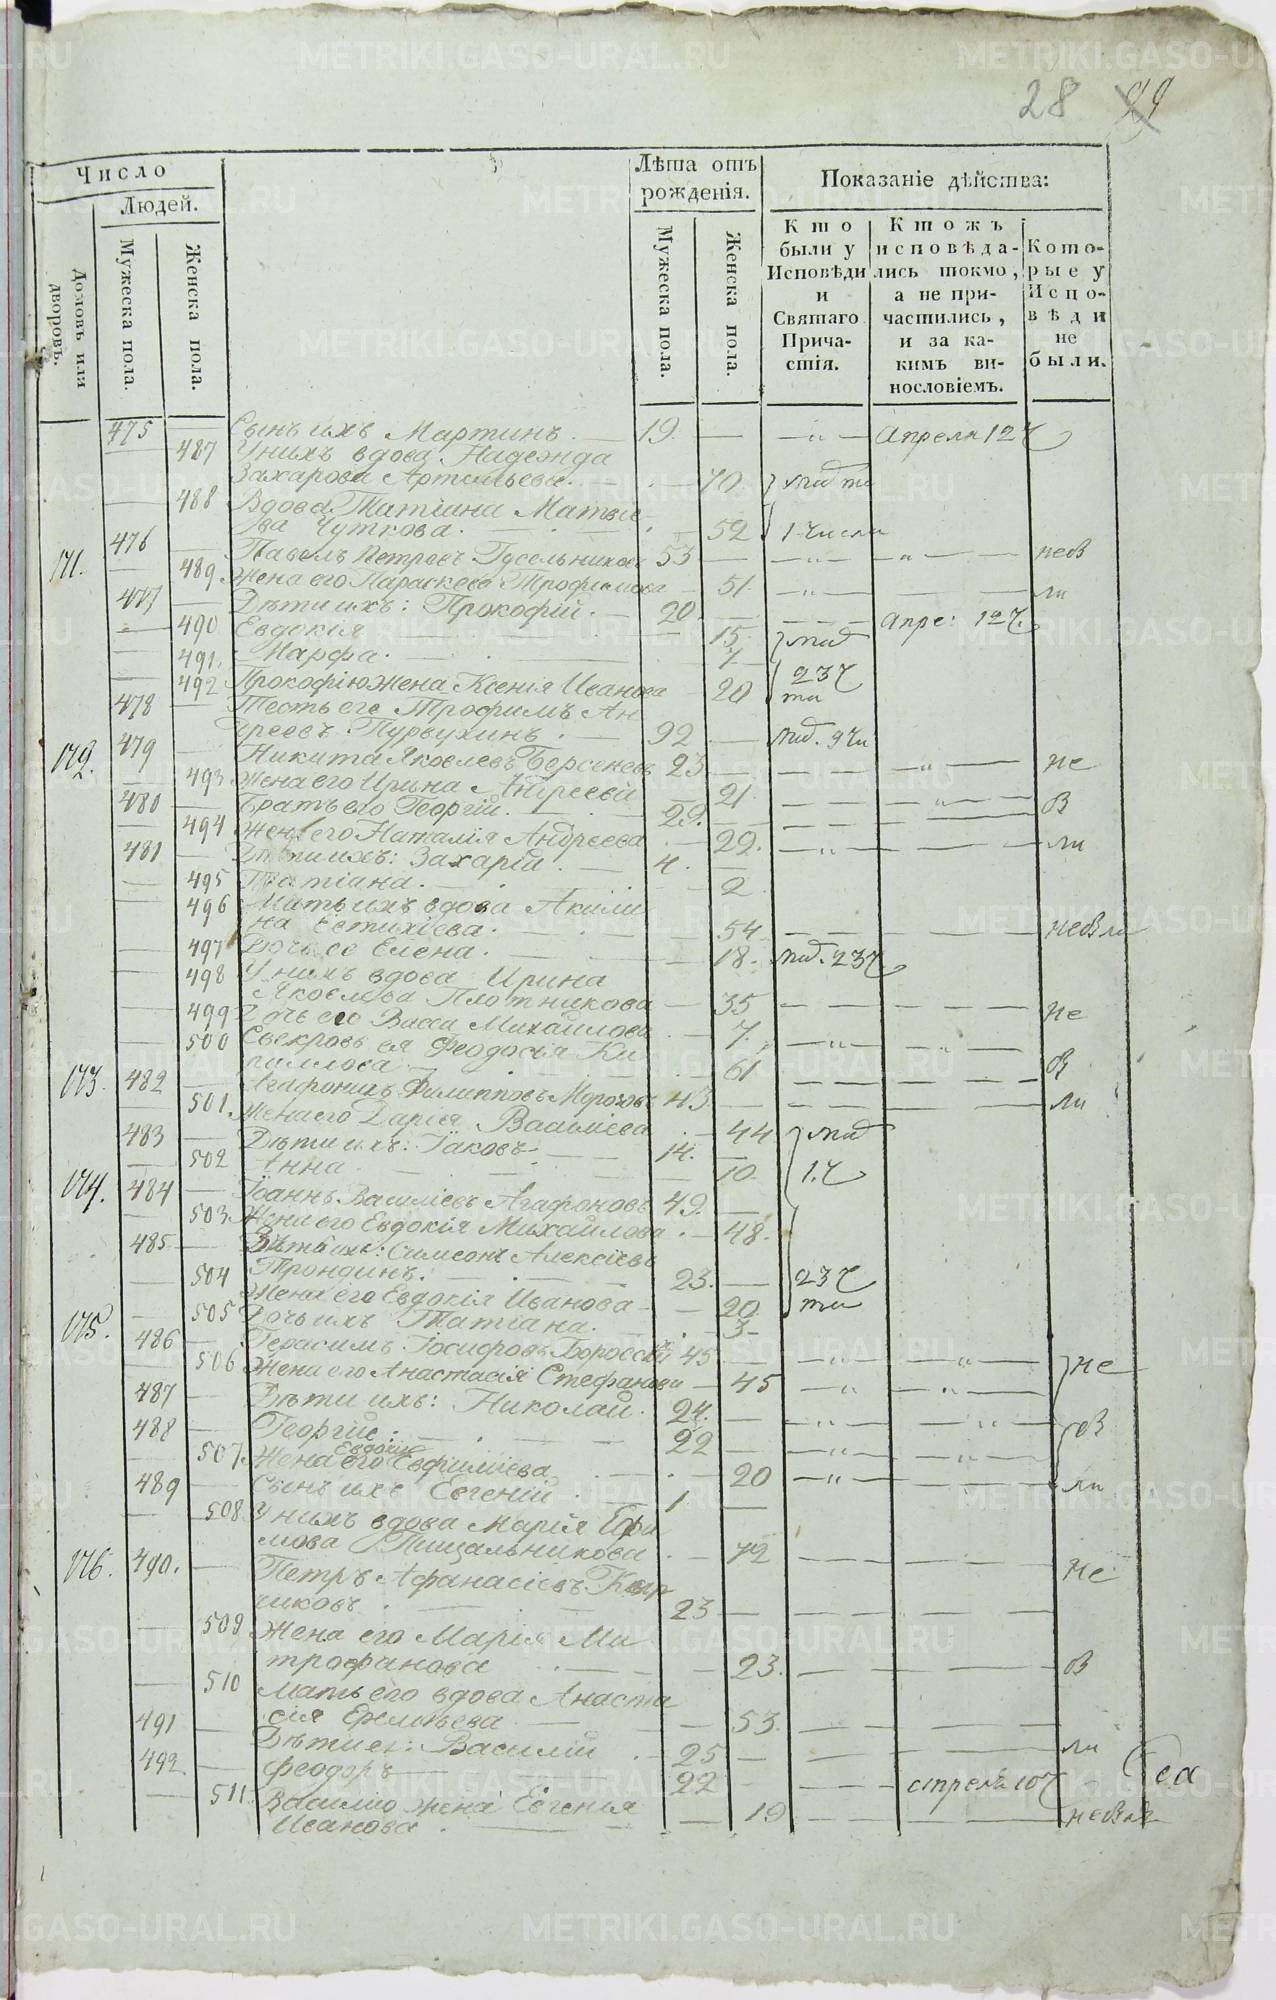 28 29
Число
Лѣта отъ рожденія.
Показаніе дѣйства:
Людей.
Домовъ или дворовъ.
Мужеска пола.
Женска пола.
Мужеска пола.
Женска пола.
Кто были у Исповѣди и Святаго Причастія.
Ктожъ исповѣдались токмо, а не причастились, и за какимъ винословіемъ.
Которые у Исповѣди не были.
475 Сынъ ихъ Мартинъ 19. Апреля 12 ч
487 У нихъ вдова Надежда
Захарова Артемьева 70
488 Вдова Татіана Матвіе-
ва Чуткова. 52 1 числа
171. 476 Павелъ Петровъ Гусельниковъ 53 небы
489 Жена его Параскева Трофимова 51. ли
477 Дѣти ихъ: Прокофій. 20 Апре: 12 ч
490 Евдокія 15
491. Марфа. 7
492 Прокофію жена Ксенія Иванова 20 23 ч
478 Тесть его Трофимъ Ан
дреевъ Пурвухинъ. 92
172. 479 Никита Яковлевъ Берсеневъ 23 не
493 Жена его Ирина Андреева 21
480 Братъ его Георгій. 29. б
494 Жена его Наталія Андреева 29. ли
481 Дѣти ихъ: Захарій 4.
495 Татіана. 2
496 Мать ихъ вдова Акили
на Евтихіева. 54
497 Дочь ее Елена. 18.
498 У нихъ вдова Ирина
Яковлева Плотникова 35
499 Дочь его Васса Михайлова 7. не
500 Свекровь ея Феодосія Ки
риллова 61 б
173. 482 Агафонъ Филипповъ Морозовъ 43 ли
501 Жена его Дарія Васильева 44
483 Дѣти ихъ: Іаковъ 14.
502 Анна. 10. 1. ч
174. 484 Іоаннъ Василіевъ Агафоновъ 49.
503 Жена его Евдокія Михайлова 48.
485 Зять ихъ: Симеонъ Алексіевъ
Трондинъ. 23. 23 ч
504 Жена его Евдокія Иванова 20
505 Дочь ихъ Татіана. 3
175. 486 Герасимъ Іосифовъ Боровскій 45 не
506 Жена его Анастасія Стефанова 45
487 Дѣти ихъ: Николай. 24.
488 Георгій: 22
Евдокія
507. Жена его Евфиміева 20
489 Сынъ ихъ Евгеній 1. ли
508 У нихъ вдова Марія Ефи
мова Пищальникова 72
176. 490. Петръ Афанасіевъ 23 не
509 Жена его Марія Ми
трофанова 23. б
510 Мать его вдова Анаста
сія Еремѣева 53.
491 Дѣти ея: Василій 25 ли
492 Феодоръ 22
511. Василію жена Евгенія
Иванова. 19